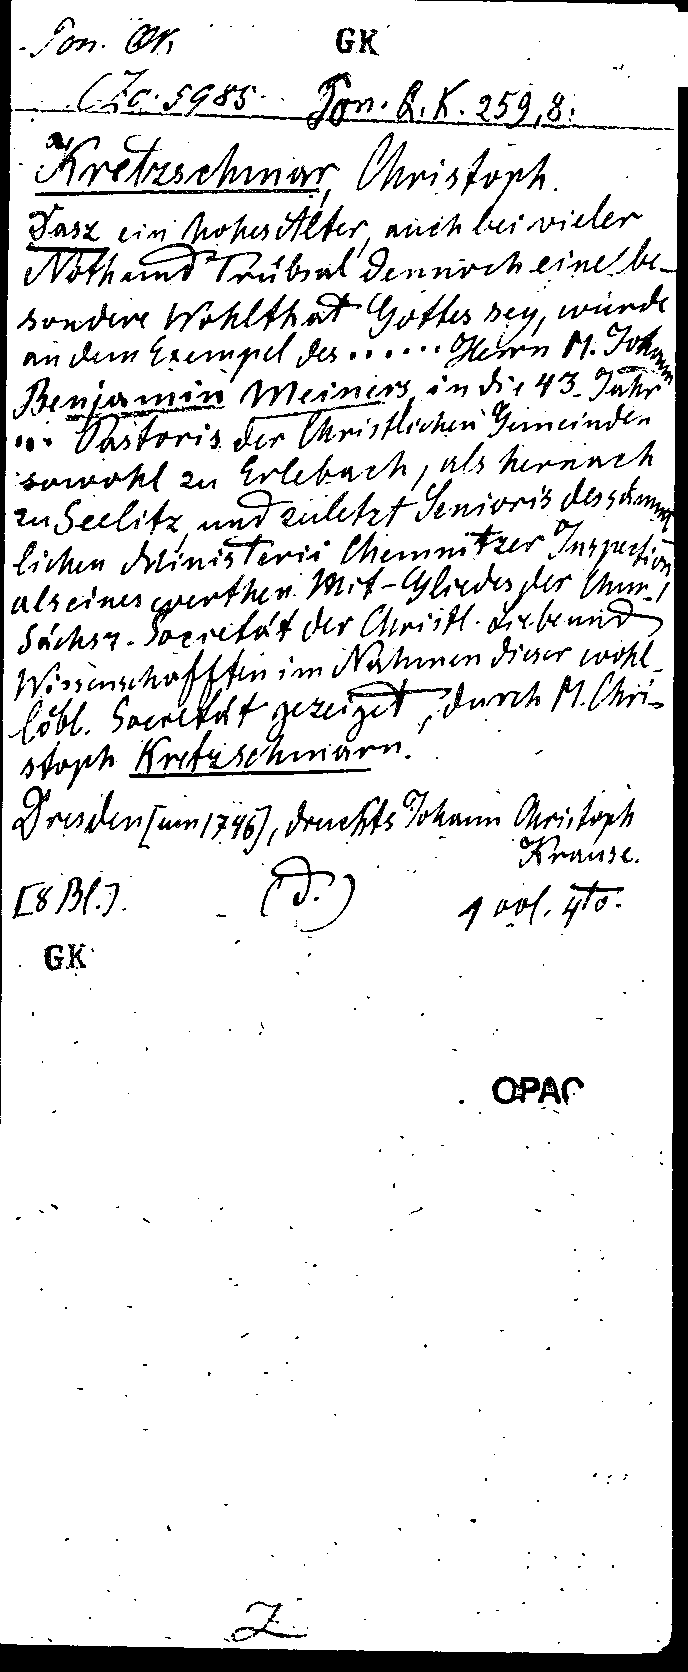 Pon. QK. GK
(Zc. 5985. Pon. Q. K. 259,8.
Kretzschmar, Christoph.
Dasz ein hohes Alter, auch bei vieler
Noth und Trübsal dennoch eine be-
sondere Wohlthat Gottes sey, wurde
an dem Exempel des ...... Herrn M. Johann
Benjamin Meiners, in die 43. Jahr
... Pastoris der Christlichen Gemeinden
sowohl zu Erlebach, als hernach
zu Seelitz, und zuletzt Senioris des sämmt
lichen Ministerii Chemnitzer Inspection
als eines werthen Mit-Gliedes der Chur-
Sächsz. Societät der Christl. Liebe und
Wissenschafften im Nahmen dieser wohl-
löbl. Societät gezeiget, durch M. Chri-
stoph Kretzschmarn.
Dresden [um 1746], druckts Johann Christoph
Krause.
[8 Bl.]. (D.) 1 vol. 4to.
GK
OPAC
Z